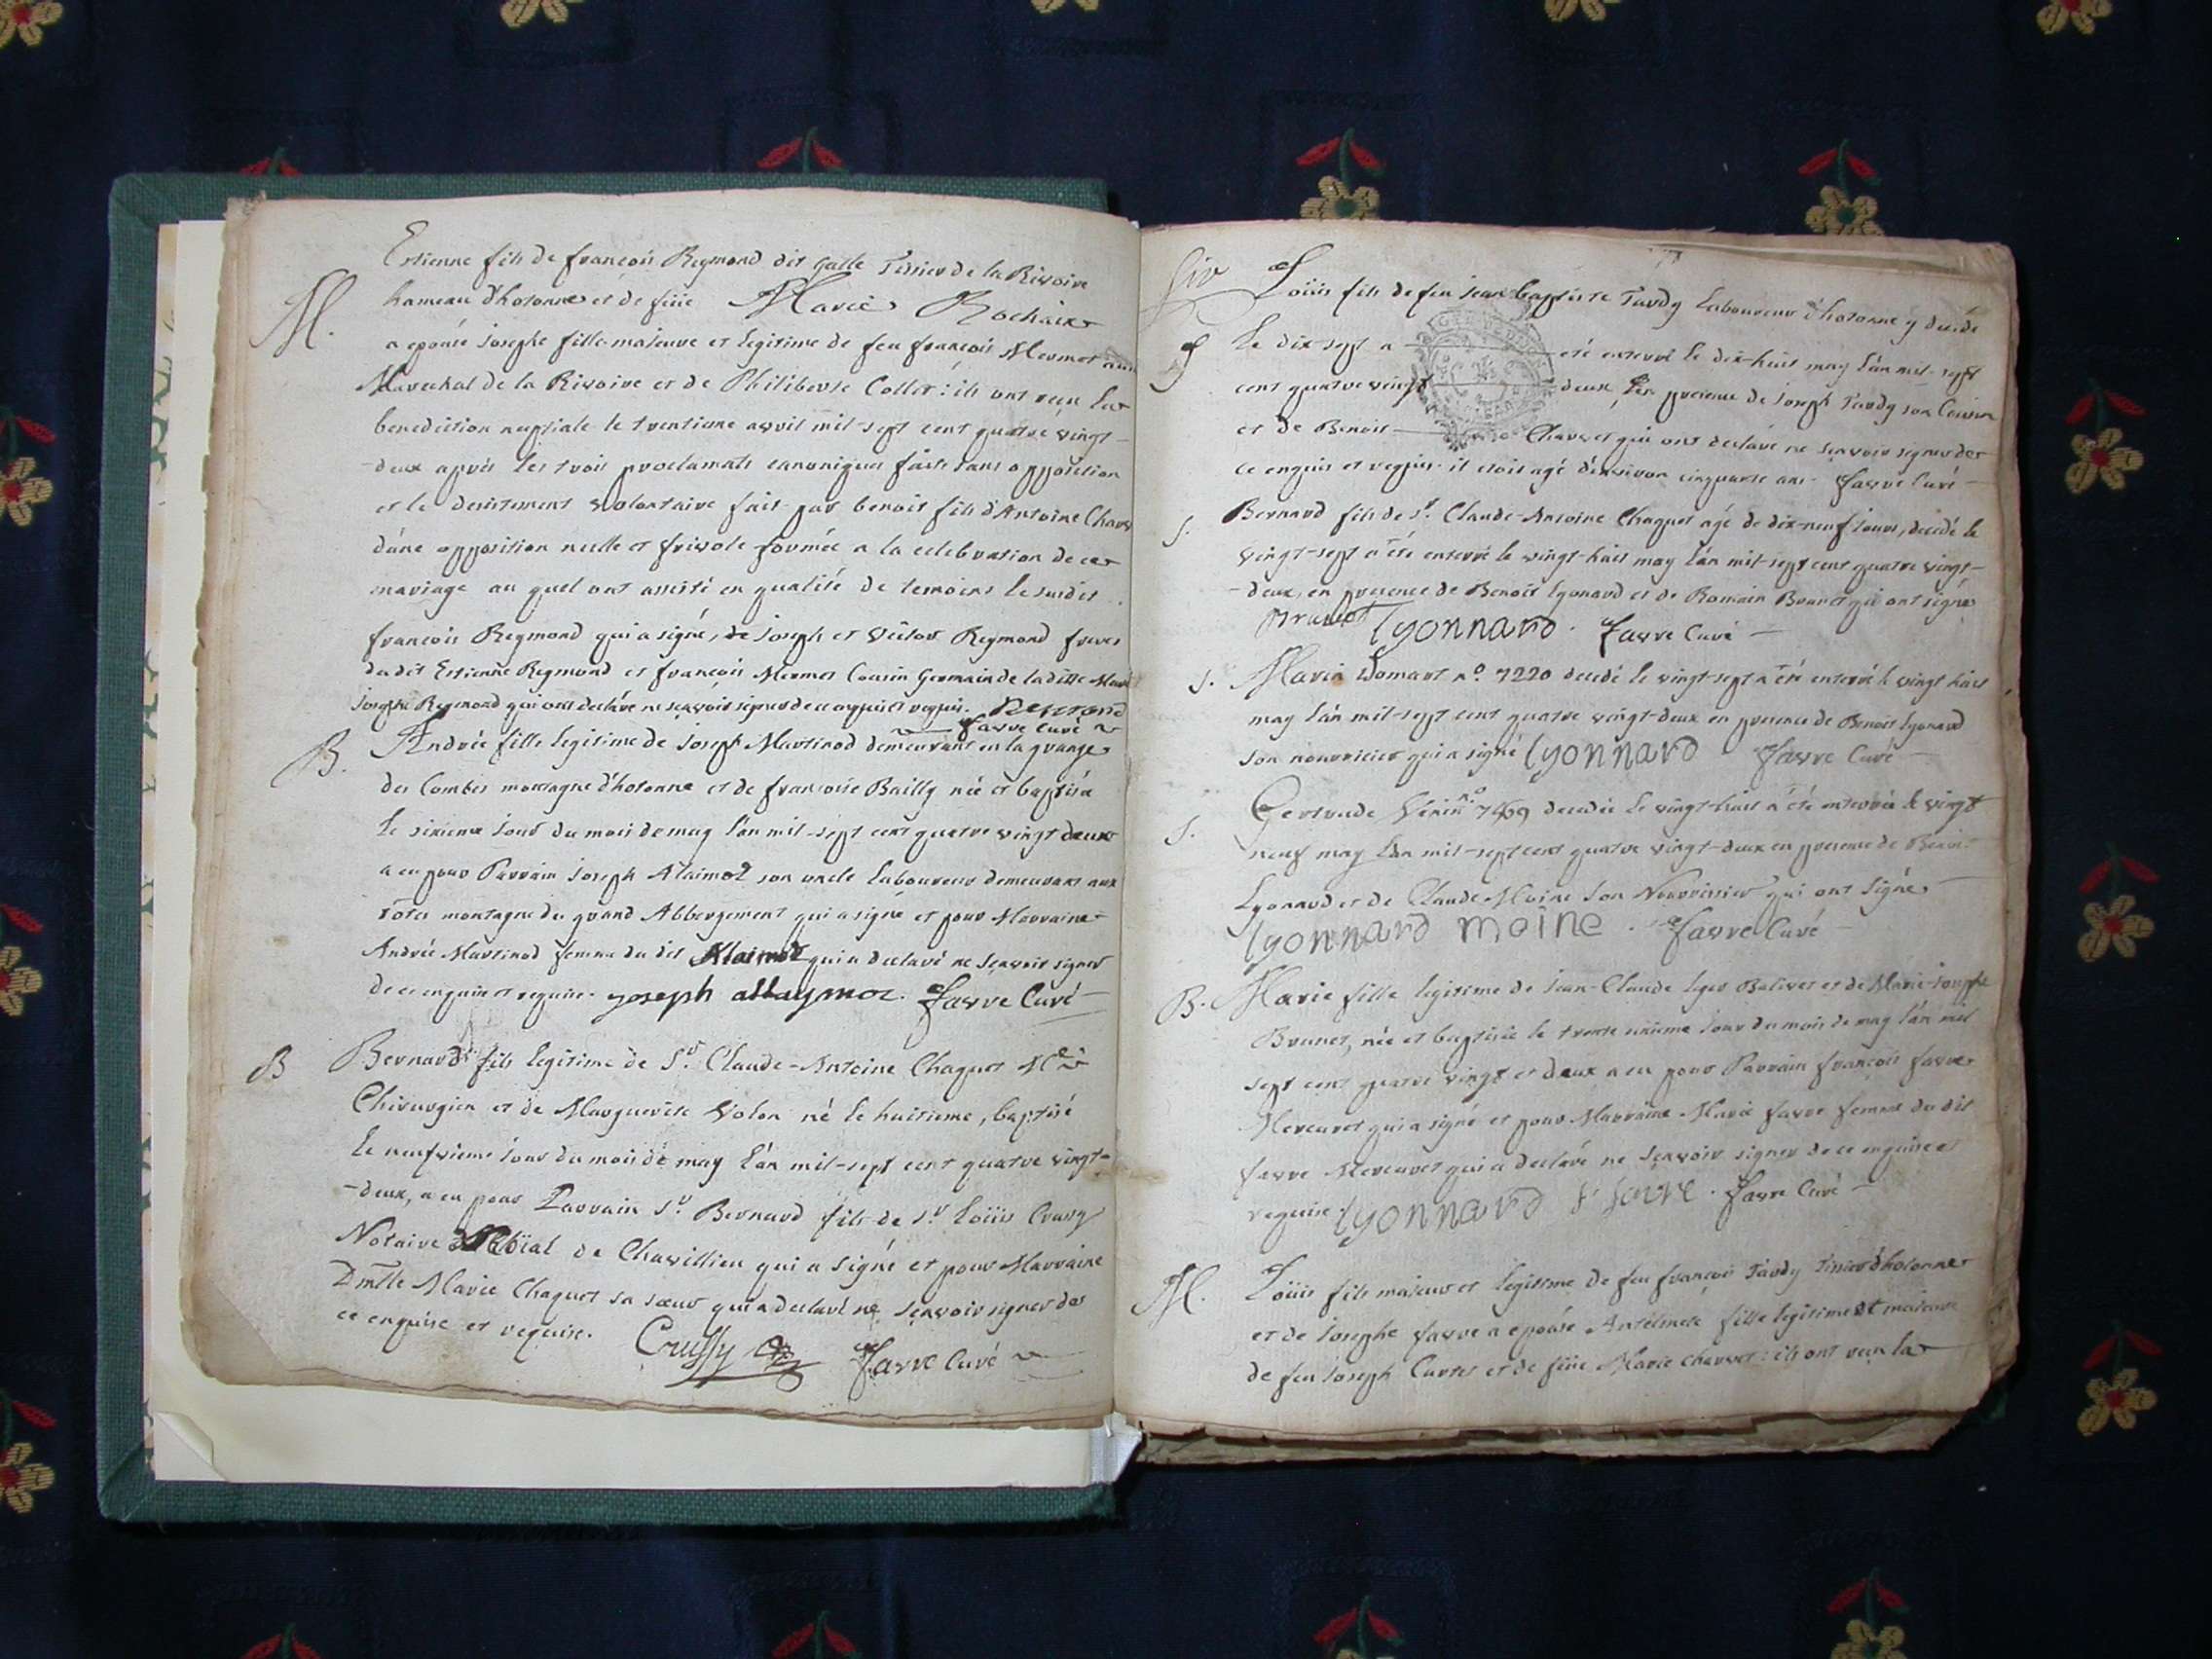 Estienne fils de françois Reymond dit Galle Tissier de la Rivoire
M.
hameau d'hotonne et de füe Marie Rochaix
a epousé Josephe fille majeure et legitime de feu françois Mermet
Marechal de la Rivoire et de Philiberte Collet : ils ont reçu la
benediction nuptiale le trentieme avril mil-sept cent quatre vingt-
-deux après les trois proclamats canoniques faits sans opposition
et le desistement volontaire fait par benoit fils d'Antoine
d'une opposition nulle et frivole formée a la celebration de ce
mariage au quel ont assisté en qualité de temoins le susdit
françois Reymond qui a signé, de Joseph et Victor Reymond freres
du dit Estienne Reymond et françois Mermet Cousin Germain de la ditte
Josephe Reymond qui ont declaré ne sçavoir signer de ce enquis et requis.
favre Curé
B.
Andrée fille legitime de Joseph Martinod demeurant en la grange
des Combes montagne d'hotonne et de françoise Bailly née et baptisée
le sixieme jour du mois de may l'an mil-sept cent quatre vingt deux
a eu pour Parrain Joseph Alaimoz son oncle Laboureur demeurant aux
montagne du grand Abbergement qui a signé et pour Marraine
Andrée Martinod femme du dit Alaimoz qui a declaré ne sçavoir signer
de ce enquise et requise. joseph allaymoz. favre Curé
B
Bernard fils legitime de Sr. Claude-Antoine Chaguet
Chirurgien et de Marguerite Volon né le huitieme, baptisé
le neufvieme jour du mois de may l'an mil-sept cent quatre vingt-
-deux, a eu pour Parrain Sr. Bernard fils de Sr Loüis
Notaire de Chavillieu qui a signé et pour Marraine
Dmlle Marie Chaguet sa sœur qui a declaré ne sçavoir signer de
ce enquise et requise. Crussy favre Curé
Loüis fils de feu Jean-baptiste Tardy Laboureur d'hotonne y decedé
S
le dix sept a été enterré le dix-huit may l'an mil-sept
cent quatre vingt deux en presence de Joseph Tardy son Cousin
et de Benoit Charvet qui ont declaré ne sçavoir signer de
ce enquis et requis. il etoit agé d'environ cinquante ans. favre Curé
S.
Bernard fils de Sr. Claude-Antoine Chaguet agé de dix-neuf jours, decedé le
vingt-sept a été enterré le vingt-huit may l'an mil-sept cent quatre vingt-
-deux, en presence de Benoit lyonard et de Romain Brunet qui ont signé
Brunet lyonnard. favre Curé
S.
Marin no. 7220 decedé le vingt-sept a été enterré le vingt huit
may l'an mil-sept cent quatre vingt-deux en presence de Benoit lyonard
son nourricier qui a signé lyonnard favre Curé
S.
Gertrude no. 7469 decedée le vingt-huit a été enterrée le vingt
neuf may l'an mil-sept cent quatre vingt-deux en presence de Benoit
Lyonard et de Claude Moine son Nourrissier qui ont signé
lyonnard moine. favre Curé
B.
Marie fille legitime de Jean-Claude leger Balivet et de Marie-Josephe
Brunet, née et baptisée le trente unieme jour du mois de may l'an mil
sept cent quatre vingt et deux a eu pour Parrain françois favre
Mercuret qui a signé et pour Marraine Marie favre femme du dit
favre Mercuret qui a declaré ne sçavoir signer de ce enquise et
requise. lyonnard f favre. favre Curé
M.
Loüis fils majeur et legitime de feu françois Tardy Tissier d'hotonne
et de Josephe favre a epousé Antelmete fille legitime et majeure
de feu Joseph Curtet et de füe Marie Charvet : ils ont reçu la